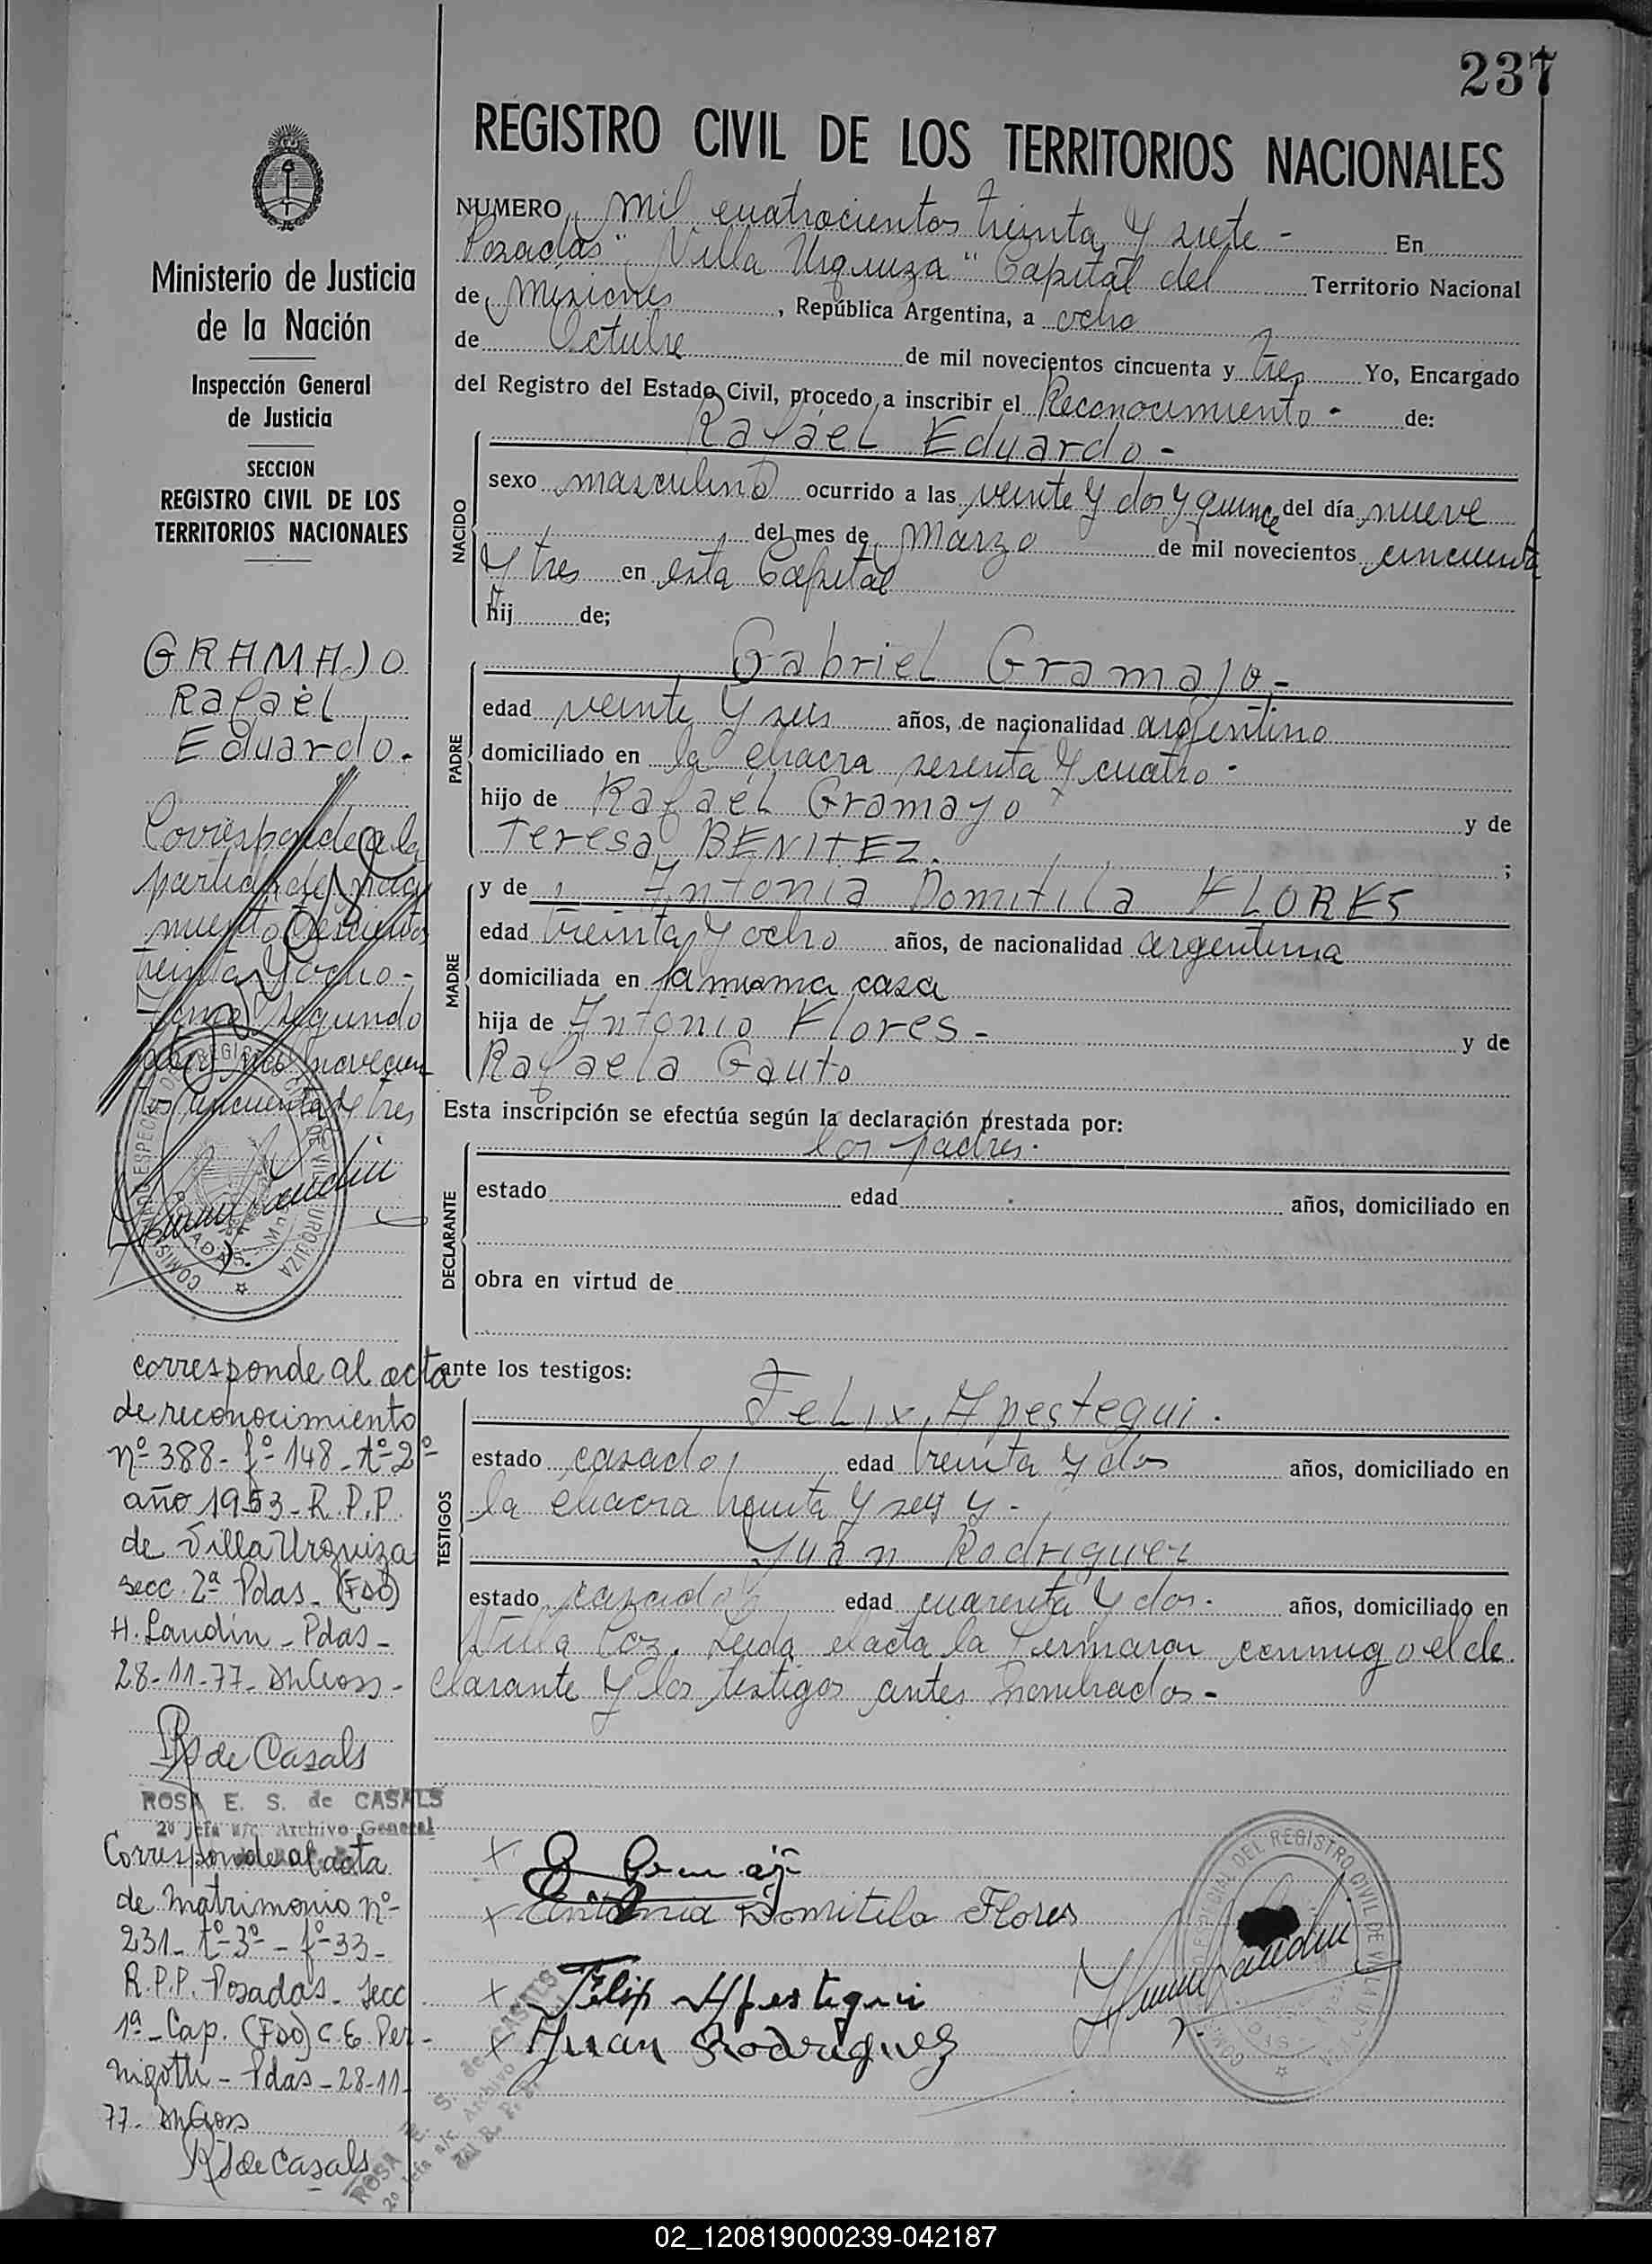 237
REGISTRO CIVIL DE LOS TERRITORIOS NACIONALES
Ministerio de Justicia
de la Nación
Inspección General
de Justicia
SECCION
REGISTRO CIVIL DE LOS
TERRITORIOS NACIONALES
NUMERO mil cuatrocientos treinta y siete - En
Posadas "Villa Urquiza" Capital del Territorio Nacional
de Misiones, República Argentina, a ocho
de Octubre de mil novecientos cincuenta y tres Yo, Encargado
del Registro del Estado Civil, procedo a inscribir el Reconocimiento - de:
NACIDO
Rafael Eduardo -
sexo masculino ocurrido a las veinte y dos y quince del día nueve
del mes de Marzo de mil novecientos cincuenta
y tres en esta Capital
hij de;
PADRE
Gabriel Gramajo -
edad veinte y seis años, de nacionalidad argentino
domiciliado en la chacra sesenta y cuatro -
hijo de Rafael Gramayo y de
Teresa BENITEZ. ;
MADRE
y de Antonia Domitila FLORES
edad treinta y ocho años, de nacionalidad argentina
domiciliada en la misma casa
hija de Antonio Flores - y de
Rafaela Gauto
Esta inscripción se efectúa según la declaración prestada por:
los padres.
DECLARANTE
estado edad años, domiciliado en
obra en virtud de
ante los testigos:
TESTIGOS
Felix Apestegui.
estado casado, edad treinta y dos años, domiciliado en
la chacra treinta y seis y -
Juan Rodriguez
estado casado edad cuarenta y dos. años, domiciliado en
Villa Coz. Leida el acta la firmaron conmigo el de
clarante y los testigos antes nombrados -
Antonia Domitila Flores
Felix Apestegui
Juan Rodriguez
GRAMAJO
Rafael
Eduardo.
Corresponde a la
partida de naci
miento trescientos
treinta y ocho -
Tomo segundo
año mil novecien
tos cincuenta y tres
corresponde al acta
de reconocimiento
nº 388 - fº 148 - tº 2º
año 1953 - R.P.P.
de Villa Urquiza
secc. 2ª Pdas - (FDO)
H. Landin - Pdas -
28-11-77 -
RS de Casals
ROSA E. S. de CASALS
2º Jefa a/c. Archivo General
Corresponde al acta
de Matrimonio nº
231 - tº 3º - fº 33 -
R.P.P. Posadas - secc
1ª - Cap. (FDO) C. E. Per -
nigotti - Pdas - 28-11-
77 -
RS de Casals
ROSA E. S. de CASALS
2º Jefa a/c Archivo
del R. P. P.
02_120819000239-042187